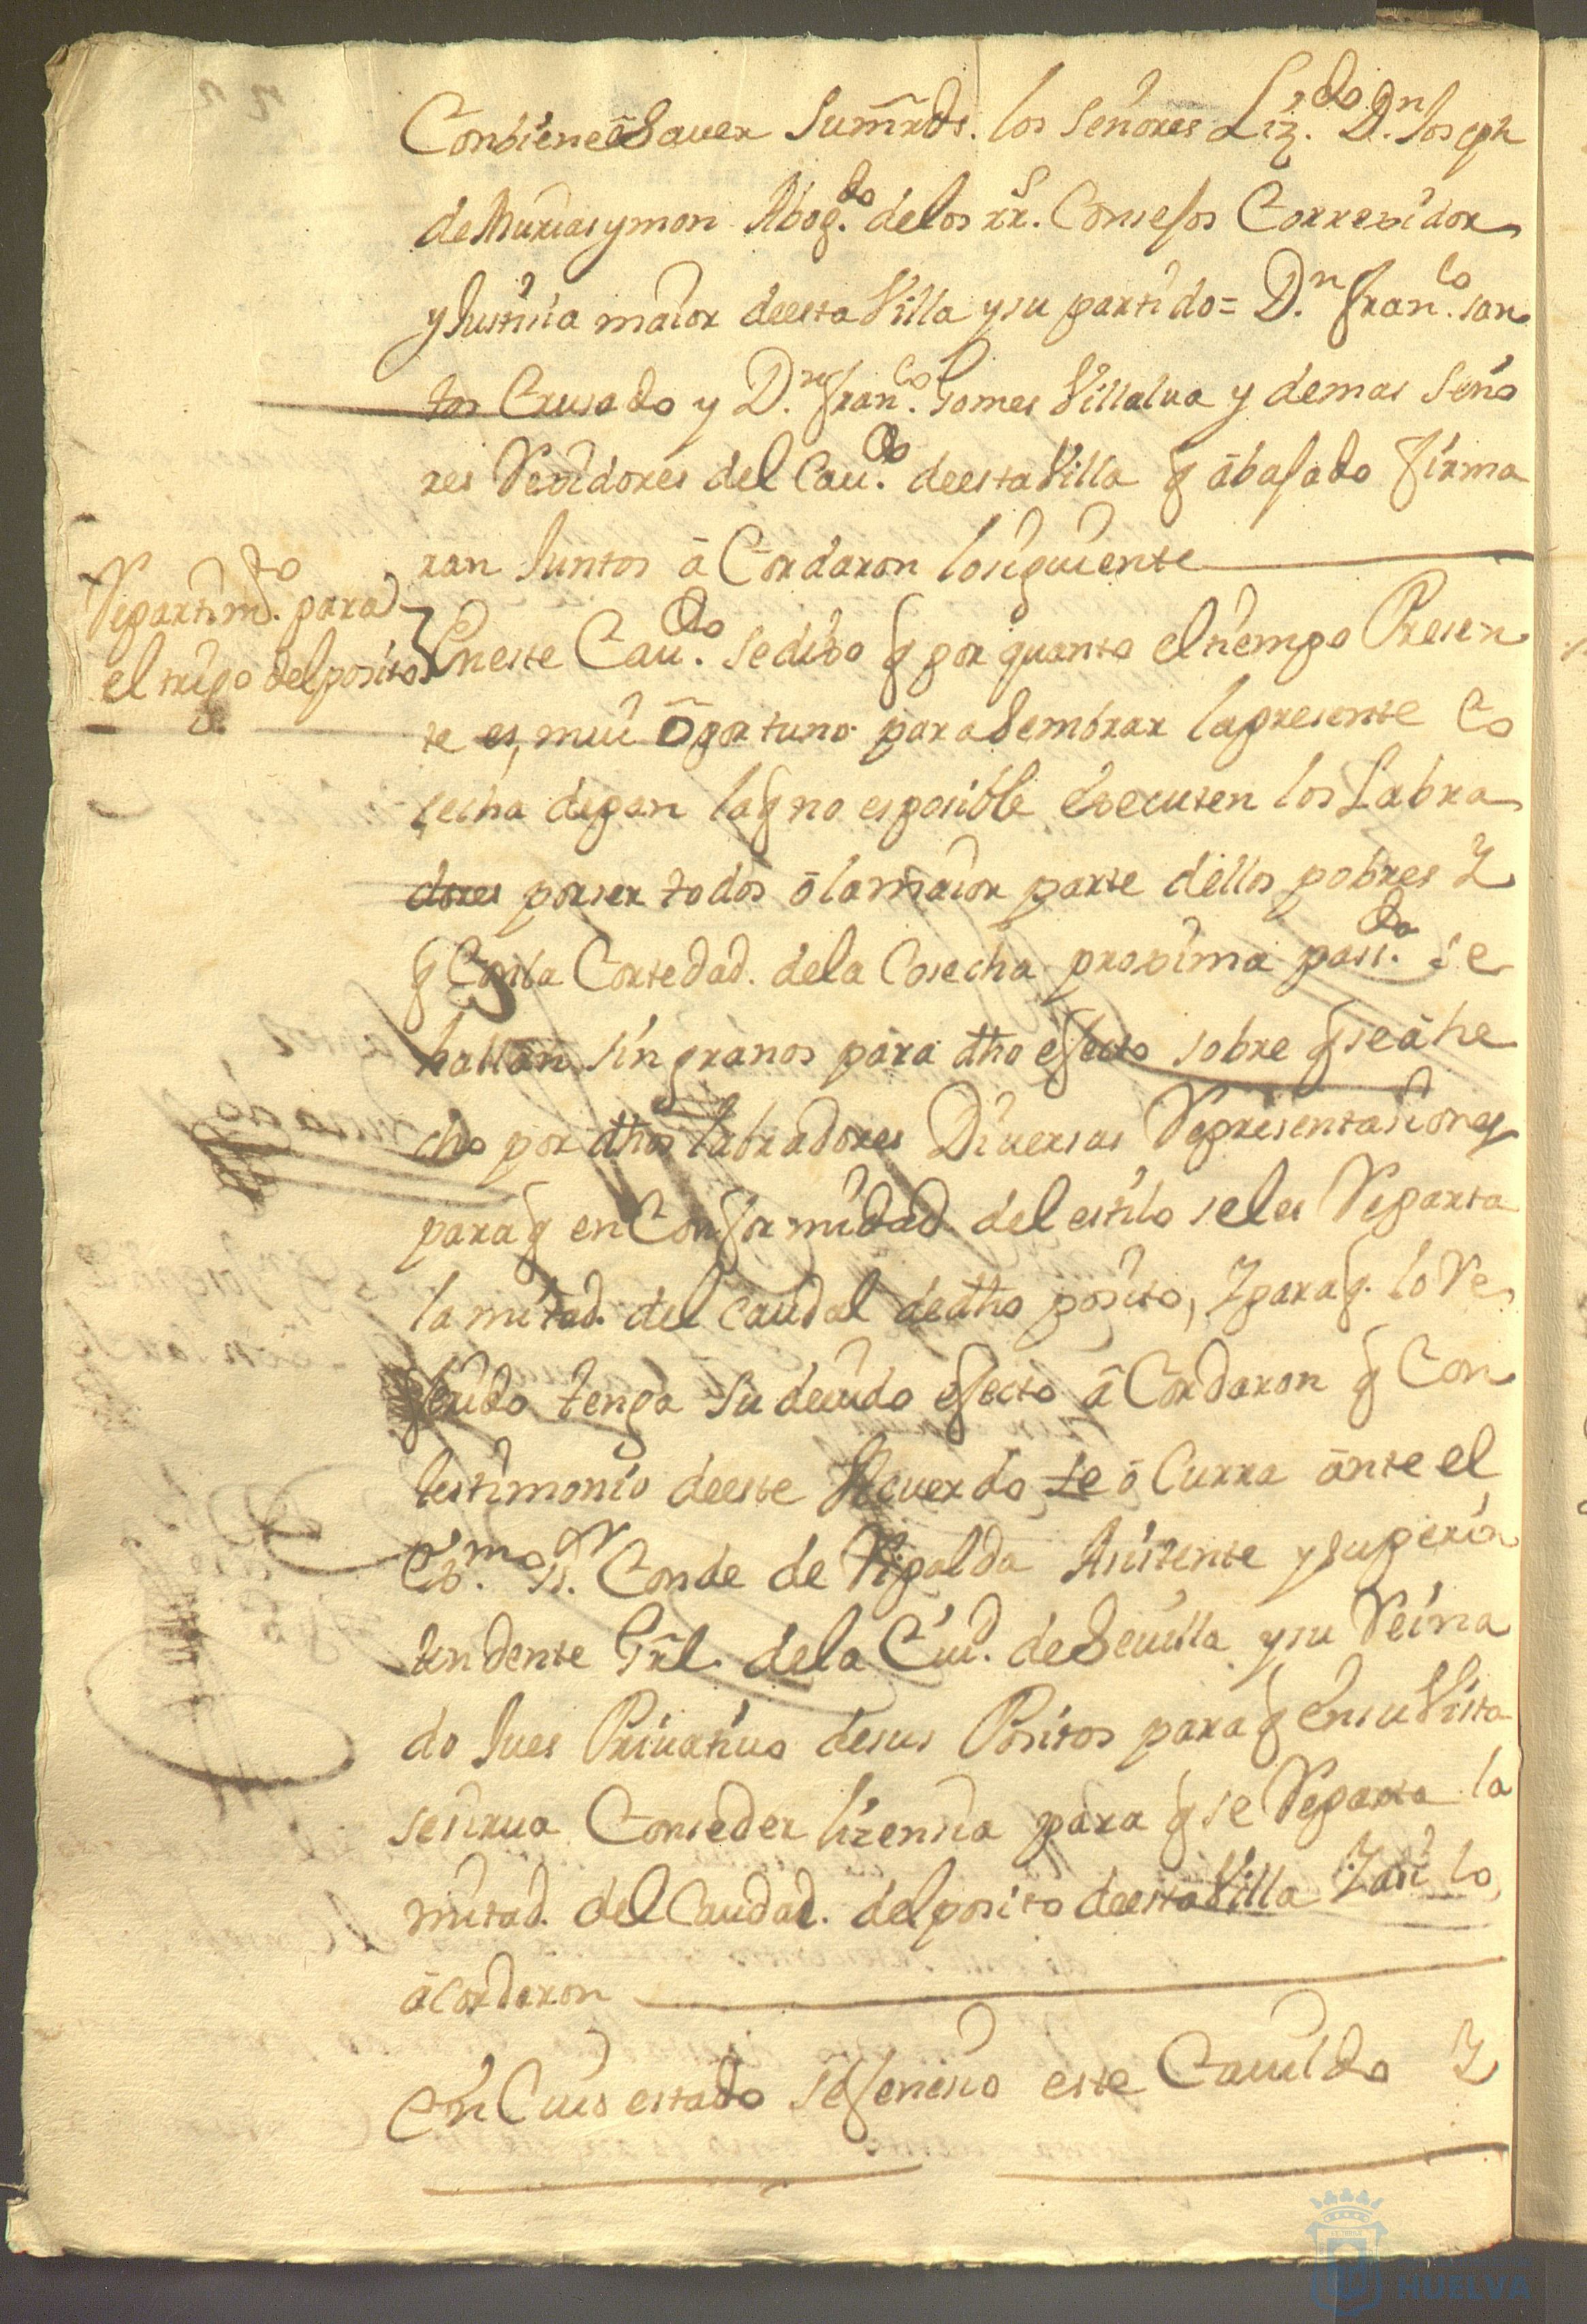 Conbiene â Sauer Sumr̃ds. los Señores Liz.do D.n Joseph
de Murias y mon Abog.do de los RR.s Consejos Correxidor
y Justicia maior de esta Villa y su partido = D.n Fran.co san
tos Crusado y D.n Fran.co Gomes Villalua y demas Seño
res Rexidores del Cau.do de esta Villa q abajado firma
ran Juntos â Cordaron lo siguiente
Repartim.to para
el trigo del posito
En este Cau.do se dixo q por quanto el tiempo Presen
te es, mui Oportuno para Sembrar la presente Co
secha de pan la q no es posible Executen los Labra
dores por ser todos ô la maior parte dellos pobres Y
q Con la Cortedad. de la Cosecha proxima pass.da se
hallan sin granos para dho efecto sobre q se â he
cho por dhos labradores Diuersas Representasiones
para q en Conformidad del estilo se les Reparta
la mitad. del caudal de dho posito, Y para q. lo Re
ferido tenga su deuido efecto â Cordaron q Con
testimonio de este Acuerdo se ô Curra ante el
Ex.mo S.r Conde de Ripalda Asistente y superin
tendente Grãl de la Ciu.d de Seuilla y su Reina
do Jues Priuatiuo de sus Positos para q En su Vista
se sirua Conseder lizensia para q se Reparta la
mitad. del Caudad. del posito de esta Villa Y asi lo
âcordaron
En Cuio estado se fenesio este Cauildo Y
HUELVA